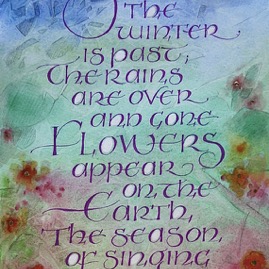 THE
WINTER
IS PAST;
THE RAINS
ARE OVER
AND GONE
FLOWERS
APPEAR
ON THE
EARTH,
THE SEASON
OF SINGING